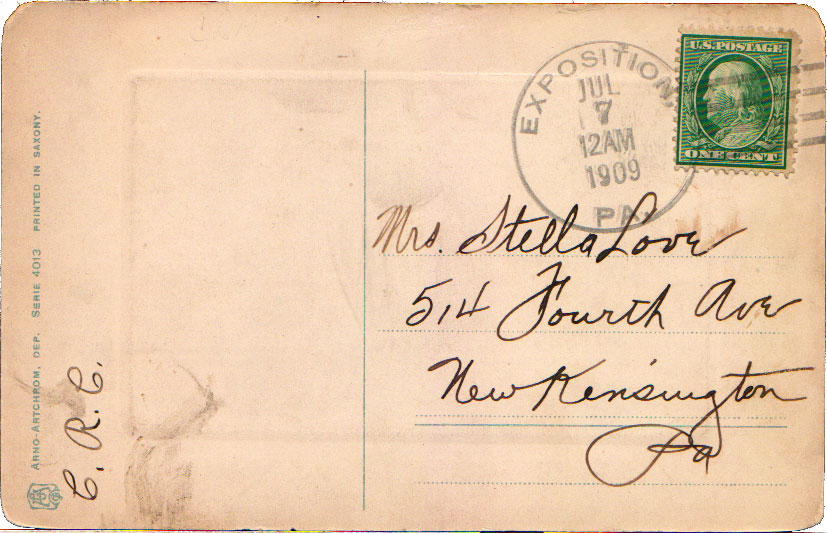 U.S. POSTAGE
ONE CENT
EXPOSITION,
JUL
7
12AM
1909
PA
Mrs. Stella Love
514 Fourth Ave
New Kensington
Pa
C. R. C.
ARNO-ARTCHROM, DEP. SERIE 4013 PRINTED IN SAXONY.